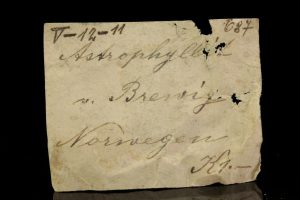 V-12-11 687
Astrophyllit
v. Brewig
Norwegen
K1.-